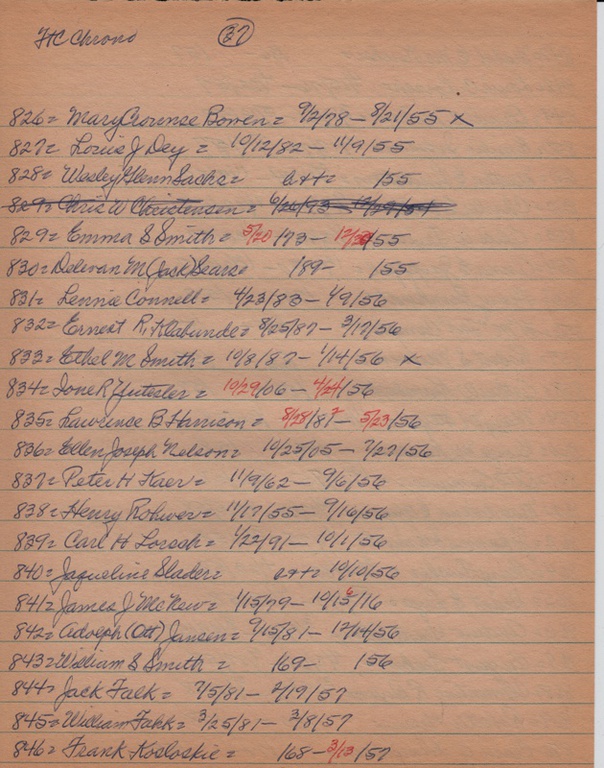 FtC Chrono 37
826= Mary Crounse Bowen = 9/2/78 - 8/21/55 x
827= Louis J Dey = 10/12/82 - 11/9/55
828= Wesley Glenn Sacks = a++= /55
829= Chris W Christensen = 6/26/93
829= Emma S Smith = 5/20/73 - /55
830= Delevan M (Jack) Sears= 189- 155
831= Lennie Connell = 4/23/83 - 1/9/56
832= Ernest R, Klabunde = 8/25/87 - 3/17/56
833= Ethel M Smith = 10/8/87 - 1/14/56 x
834= Ione R = 10/29/06 - 4/24/56
835= Lawrence B Harrison = 8/28/87 - 5/23/56
836= Ellen Joseph Nelson= 10/25/05 - 7/27/56
837= Peter H Kaer = 11/9/62 - 9/6/56
838= Henry Rohwer = 11/17/55 - 9/16/56
839= Carl H = 1/22/91 - 10/1/56
840= Jaqueline Slader= a++= 10/10/56
841= James J McNew = 1/15/79 - 10/15/16
842= Adolph (Ott) Jansen = 9/15/81 - 12/14/56
843= William S Smith = 169- 156
844= Jack Falk = 7/5/81 - 2/19/57
845= William Fahk = 3/25/81 - 3/8/57
846= Frank Kosloskie = 168 - 3/13/57